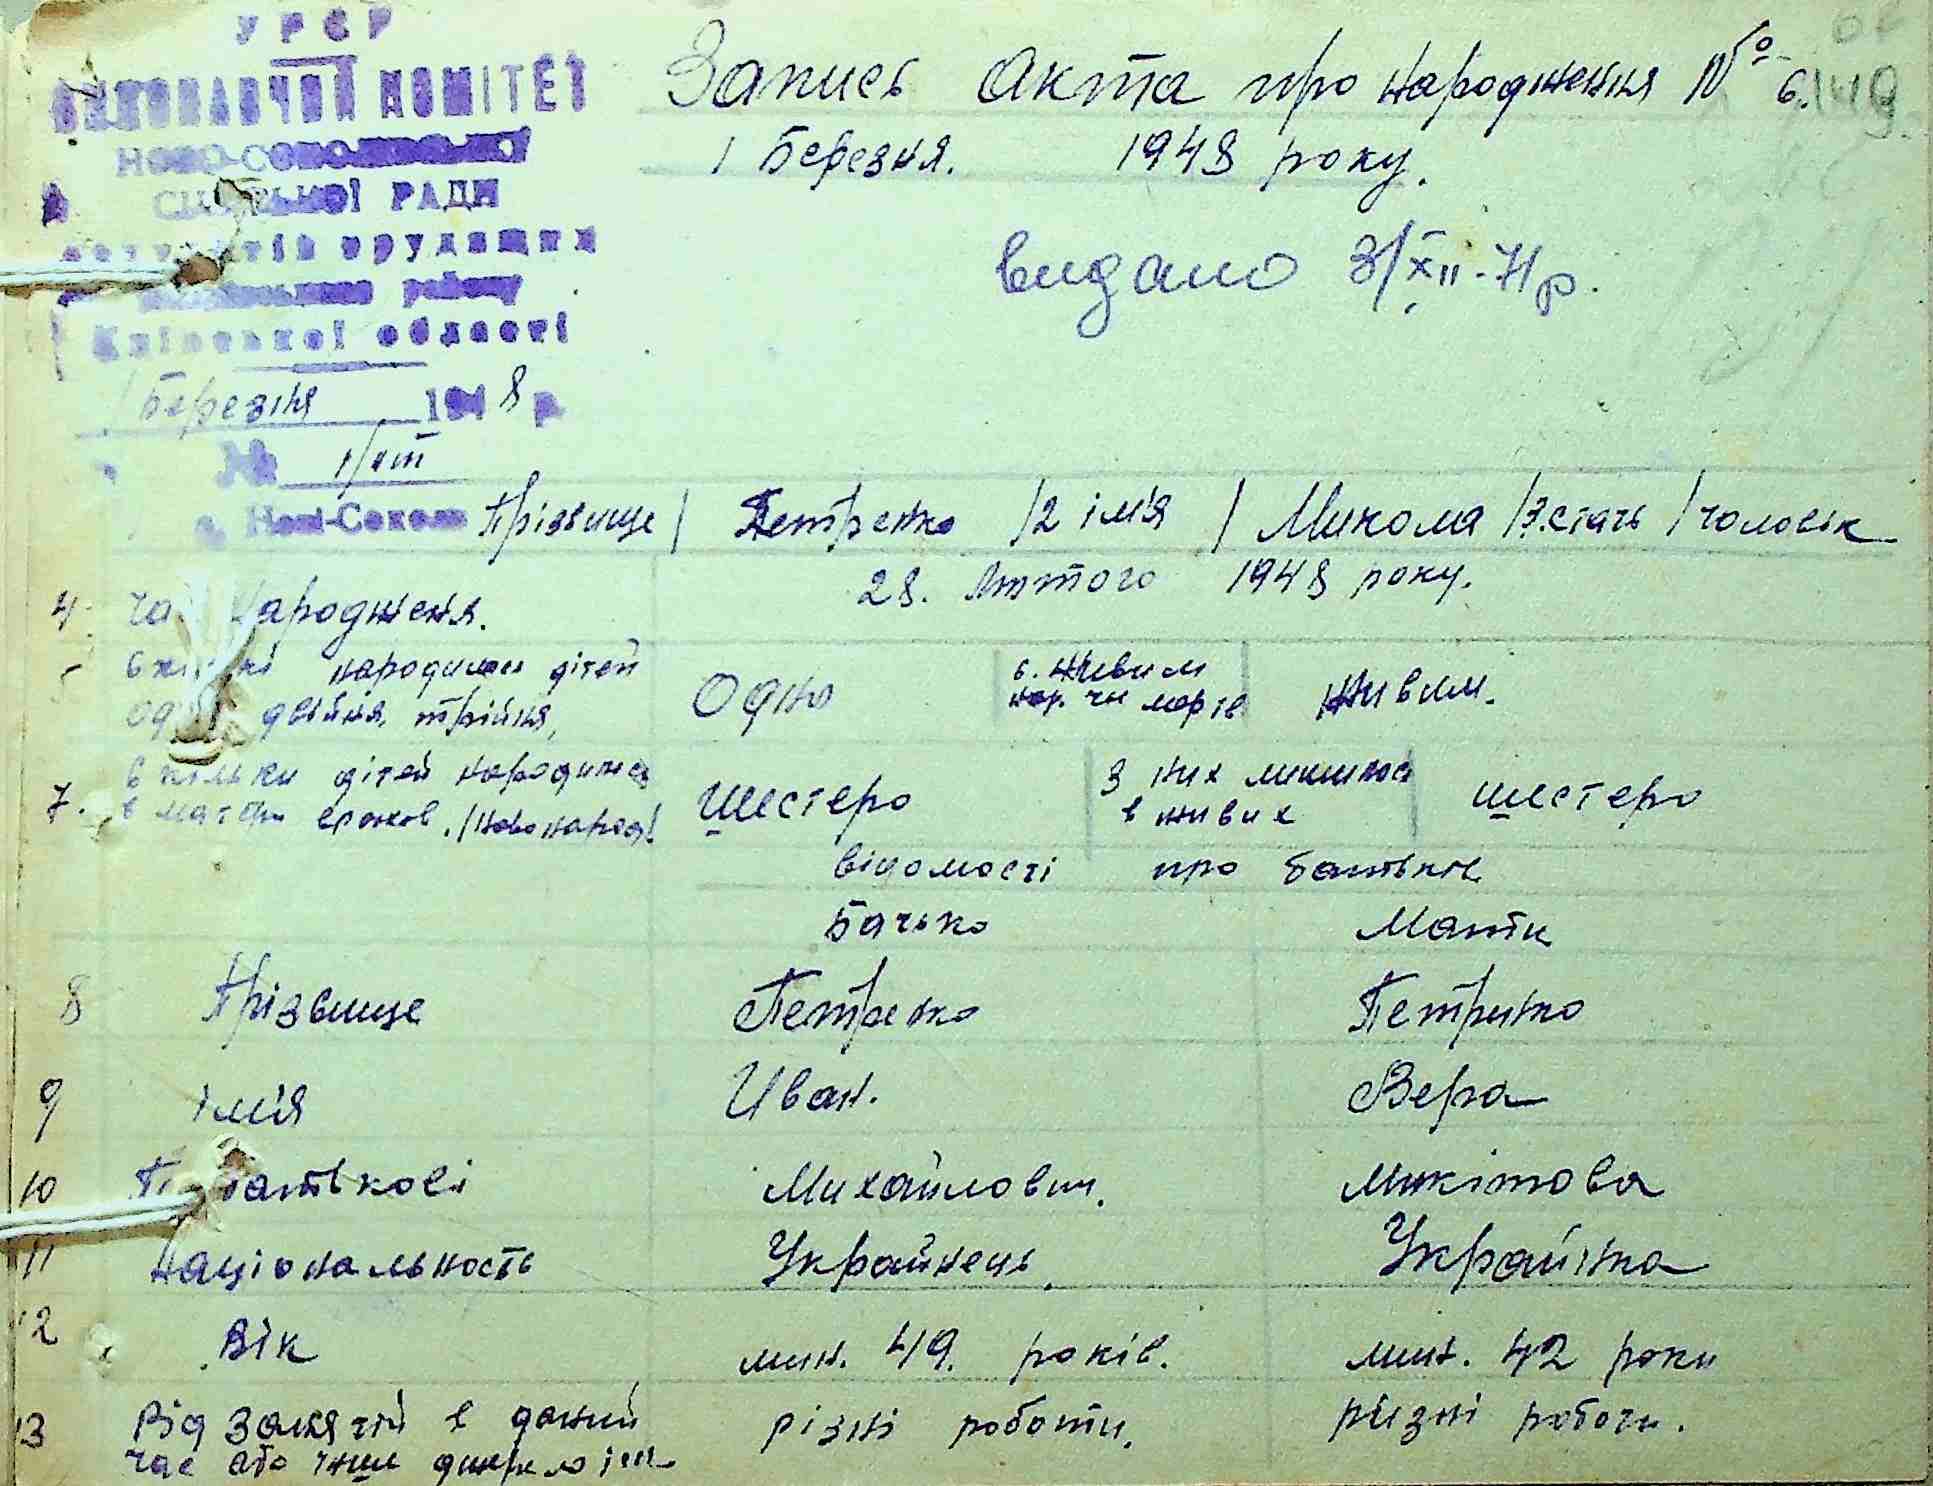 УРСР
ВИКОНАВЧИЙ КОМІТЕТ
СІЛЬСЬКОЇ РАДИ
депутатів трудящих
району
Київської області
1 Березня 1948 р.
№
с. Нові-Соколи
Запись Акта про народження № 6. 149
1 Березня. 1948 року.
видано 3/XII-71р.
Прізвище / Петренко / 2 ім'я / Микола / 3. стать / чоловік
4. час народженя. 28. Лютого 1948 року.
5 народилося дітей
двійня, трійня,
Одно
6. живим
нар. чи мертв
живим.
7. скільки дітей народилося
в матери
шестеро
З них лишилося
в живих
шестеро
відомості про батьків
Батько Мати
8 Прізвище Петренко Петринко
9 ім'я Иван. Вера
10 По батькові Михайлович. Микітова
11 Національность Украйнець. Украйінка
12 Вік мин. 49. років. мин. 42 роки
13 Від занятій в даний різні роботи. рizні роботи.
час або інше джерело існ